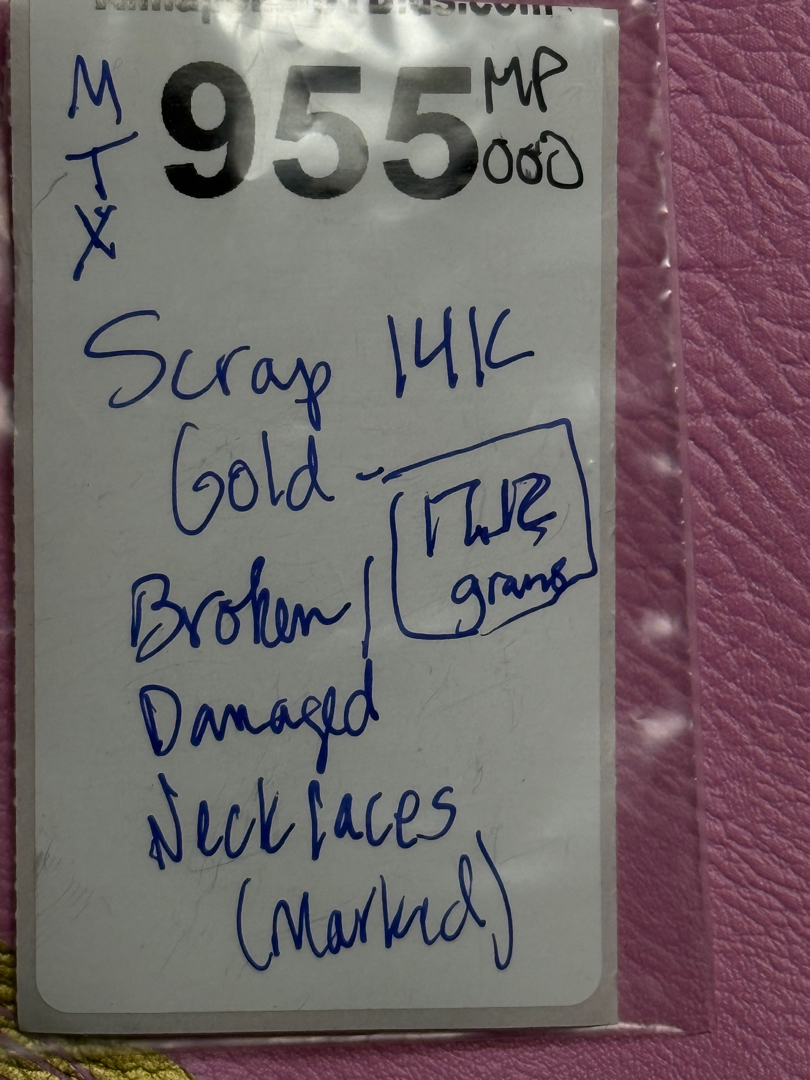 955
M
T
X
MP
000
Scrap 14K
Gold -
17.12
grams
Broken/
Damaged
Necklaces
(Marked)